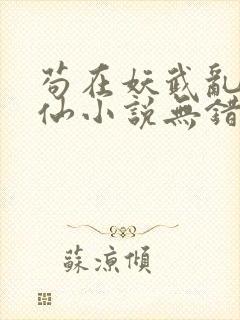 苟在妖武亂
仙小說無錯
蘇涼傾